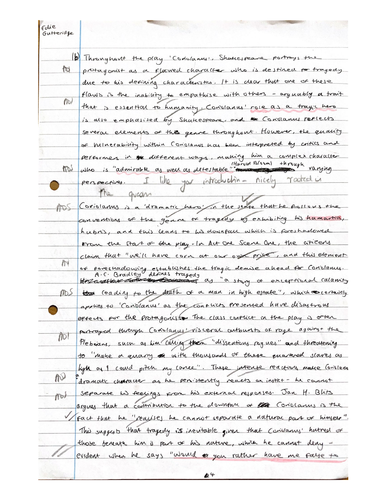 Edie
Gutteridge
(b) Throughout the play 'Coriolanus', Shakespeare portrays the
AO1 protagonist as a flawed character who is destined for tragedy
due to his defining characteristics. It is clear that one of these
flaws is the inability to empathise with others - arguably a trait
that is essential to humanity. Coriolanus' role as a tragic hero
is also emphasised by Shakespeare, and Coriolanus reflects
several elements of the genre throughout. However, the quantity
of vulnerability within Coriolanus has been interpreted by critics and
performers in different ways, making him a complex character
who is "admirable" through ranging
perspectives. I like your introduction - nicely rooted in
the question
AO5 Coriolanus is a 'dramatic hero' in the sense that he follows the
conventions of the genre of tragedy by exhibiting his hamartia,
hubris, and this leads to his downfall which is foreshadowed
from the start of the play. In Act One Scene One, the citizens
claim that "we'll have corn at our own price", and this element
of foreshadowing establishes the tragic demise ahead for Coriolanus.
A.C. Bradley defines tragedy
as "a story of exceptional calamity
AO5 leading to the death of a man in high estate", which certainly
applies to 'Coriolanus' as the conflicts presented have disastrous
effects for the protagonist. The class conflict in the play is often
portrayed through Coriolanus' visceral outbursts of rage against the
Plebeians, such as him calling them "dissentious rogues" and threatening
to "make a quarry with thousands of these quartered slaves as
high as I could pitch my lance". These intense reactions make Coriolanus a
dramatic character as he persistently reacts on - he cannot
separate his feelings from his external responses. Jan H. Blits
argues that a contribution to the downfall of Coriolanus is the
fact that he "he cannot separate a natural part of himself"
This suggests that tragedy is inevitable given that Coriolanus' hatred of
those beneath him is part of his nature, which he cannot deny -
evident when he says "would you rather have me false to